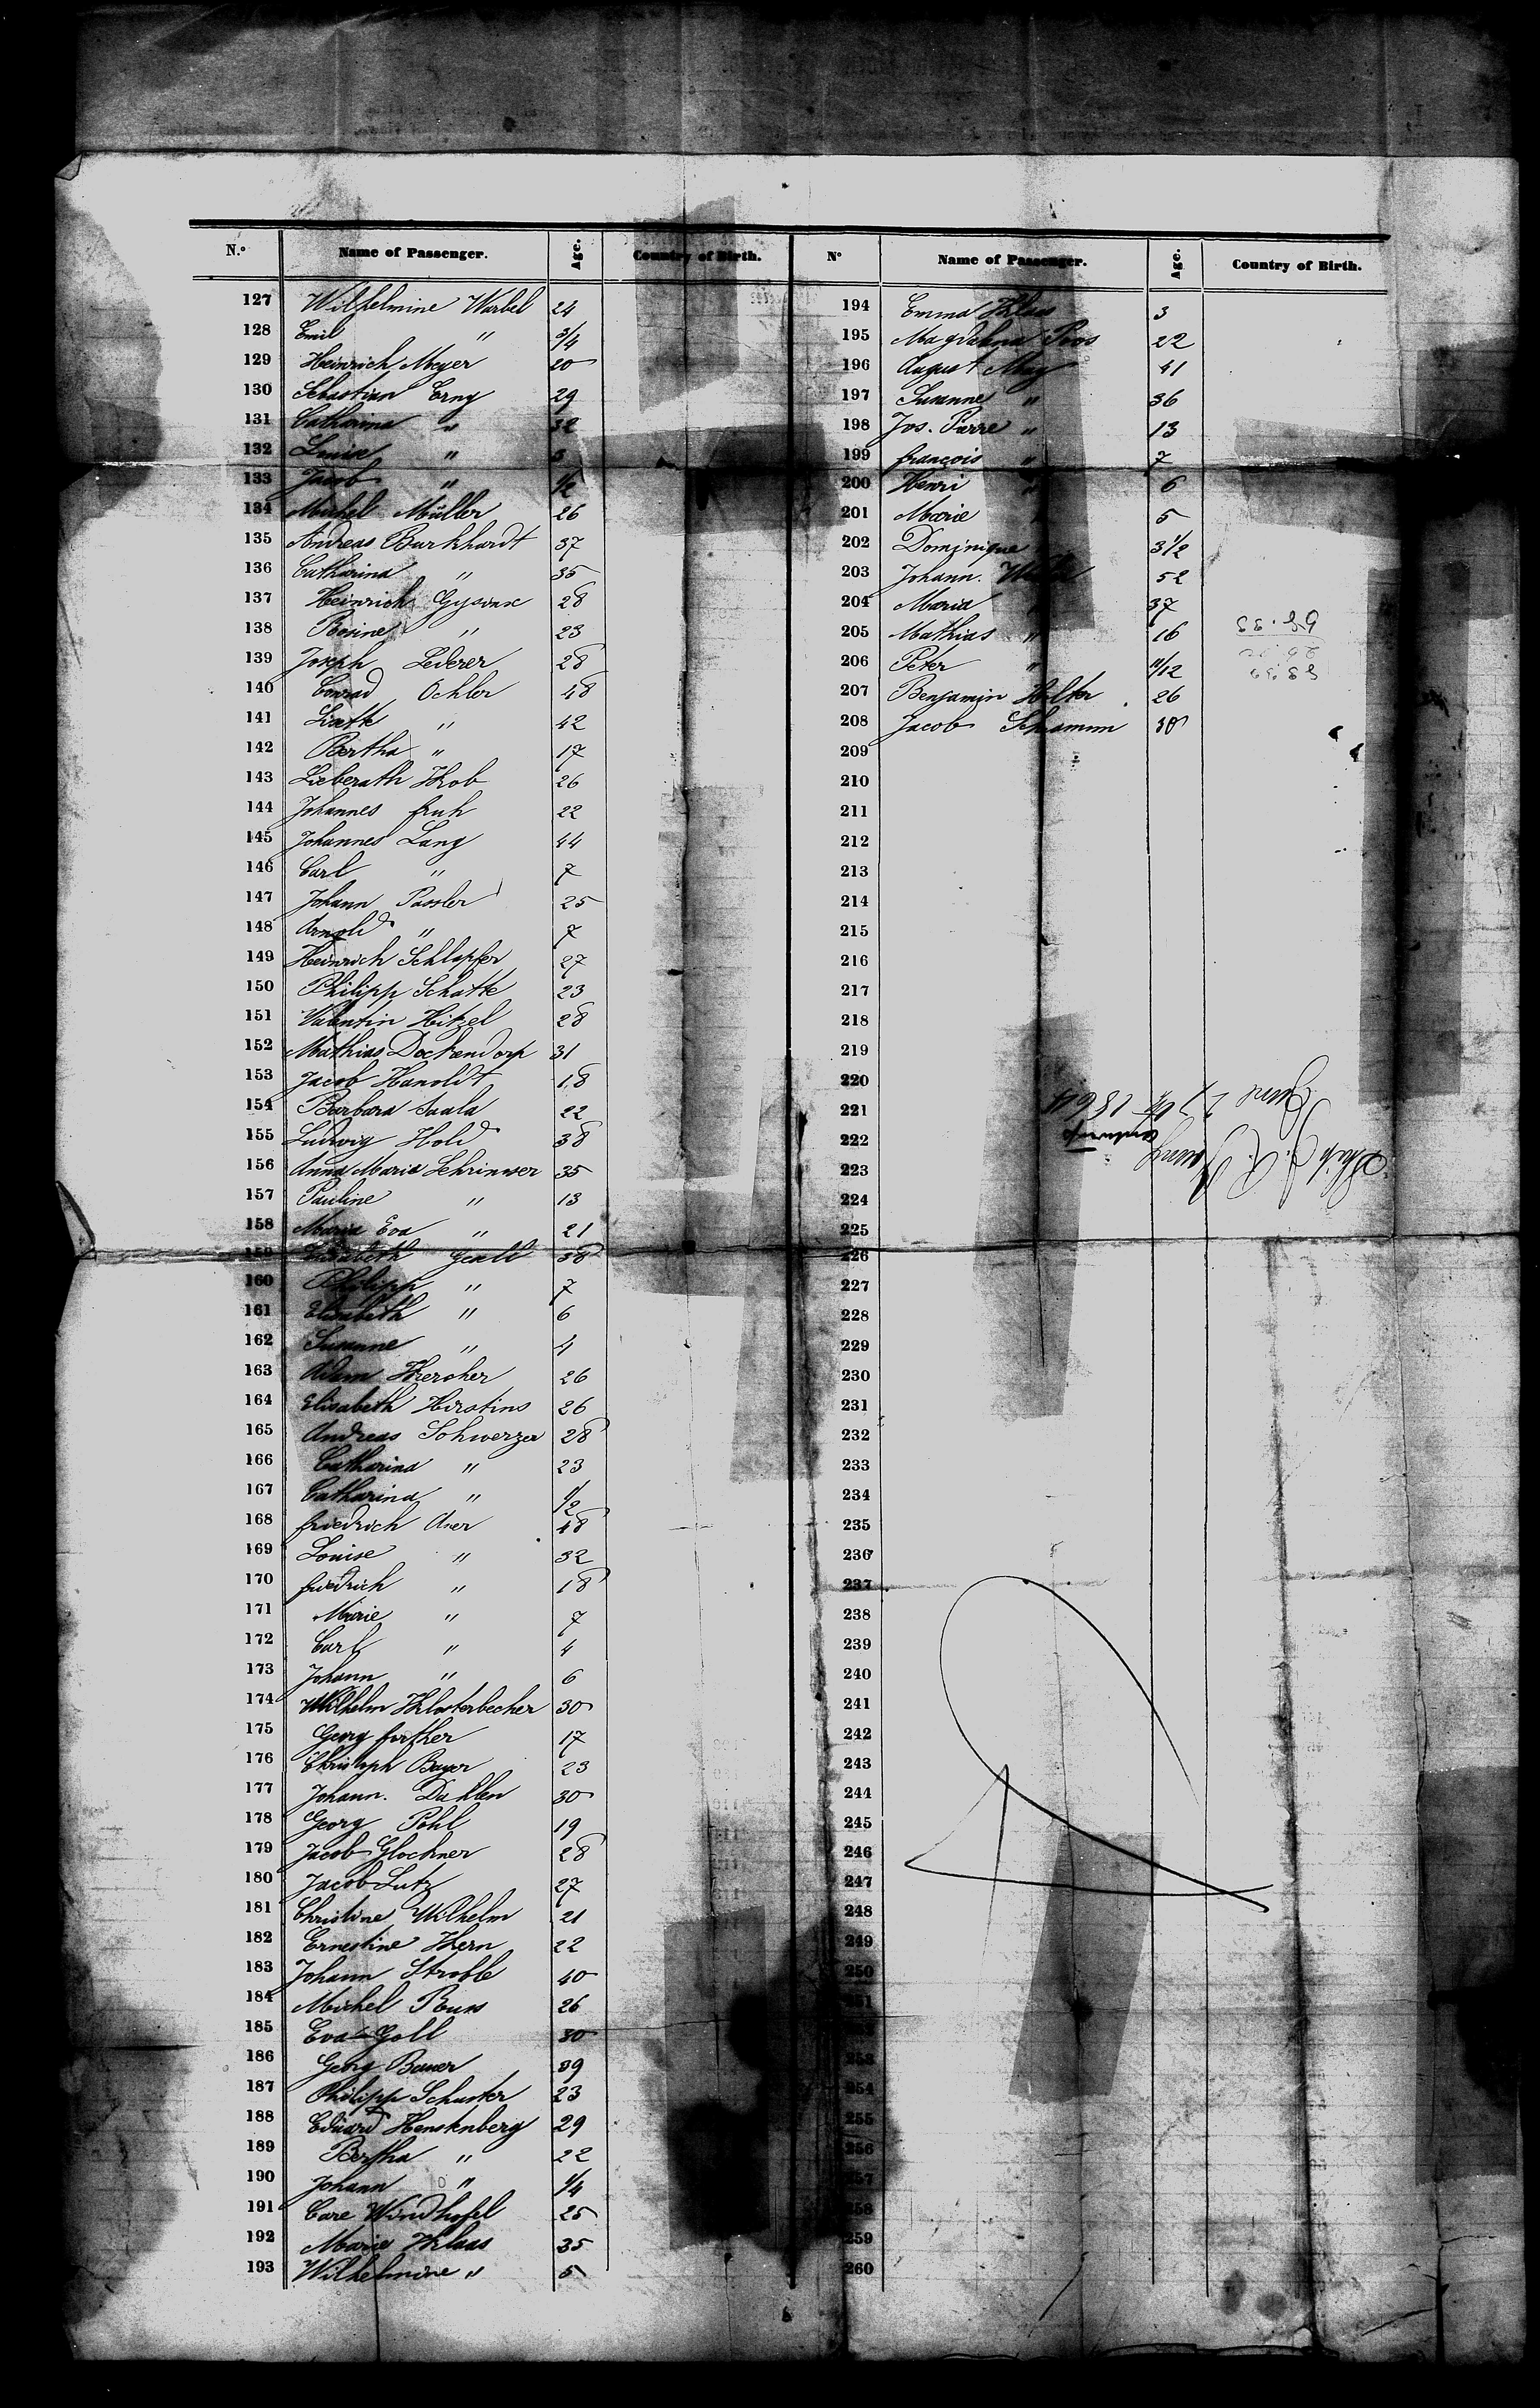 N.º Name of Passenger. Age. Country of Birth.
127 Wilhelmine Warbel 24
128 Emil " 3/4
129 Heinrich Meyer 20
130 Sebastian Erny 29
131 Catharina " 32
132 Louise " 5
133 Jacob " 1/2
134 Michel Müller 26
135 Andreas Burkhardt 37
136 Catharina " 35
137 Heinrich 28
138 Rosine " 23
139 Joseph Lederer 28
140 Conrad Ochler 48
141 " 42
142 Bertha " 17
143 Lieberath Krob 26
144 Johannes fruh 22
145 Johannes Lang 44
146 Carl " 7
147 Johann Passler 25
148 Arnold " 7
149 Heinrich Schlapfer 27
150 Philipp Schatte 23
151 Valentin Hitzel 28
152 Mathias Dockendorf 31
153 Jacob Hanoldt 18
154 Barbara Saala 22
155 Ludwig Hold 38
156 Anna Maria 35
157 Pauline " 13
158 Maria Eva " 21
159 Elisabeth 38
160 Philipp " 7
161 Elisabeth " 6
162 Susanne " 4
163 Adam Kercher 26
164 Elisabeth Hirstins 26
165 Andreas Schwerzer 28
166 Catharina " 23
167 Catharina " 1/2
168 friedrich Auer 48
169 Louise " 32
170 friedrich " 18
171 Marie " 7
172 Carl " 4
173 Johann " 6
174 Wilhelm Klosterbecher 30
175 Georg further 17
176 Christoph Bayer 23
177 Johann. Dahlen 30
178 Georg Pohl 19
179 Jacob Glockner 28
180 Jacob Lutz 27
181 Christine Wilhelm 21
182 Ernestine Kern 22
183 Johann Stroble 40
184 Michel 26
185 Eva Goll 30
186 Georg Bauer 39
187 Philipp Schuster 23
188 Eduard Henstenberg 29
189 Bertha " 22
190 Johann " 1/4
191 Care Windhofel 25
192 Marie Klaas 35
193 Wilhelmine " 5
Nº Name of Passenger. Age. Country of Birth.
194 Emma Klaas 3
195 Magdalena Poos 22
196 August May 41
197 Susanne " 36
198 Jos. Pierre " 13
199 françois " 7
200 Henri " 6
201 Marie 5
202 Dominique 3 1/2
203 Johann. 52
204 Maria 37
205 Mathias " 16
206 Peter " 11/12
207 Benjamin Holter 26
208 Jacob Schramm 30
209
210
211
212
213
214
215
216
217
218
219
220
221
222
223
224
225
226
227
228
229
230
231
232
233
234
235
236
237
238
239
240
241
242
243
244
245
246
247
248
249
250
251
253
254
255
256
257
258
259
260
Ship J. R. Young
Antwerp
June 27th 1864